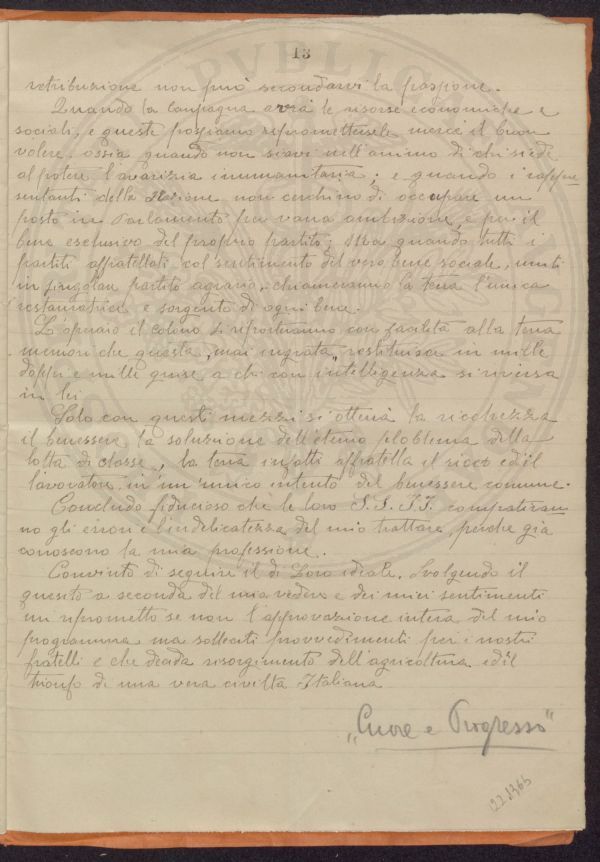 13
retribuzione non può secondarvi la passione.
Quando la Campagna avrà le risorse economiche e
sociali, e queste possiamo ripromettercele mercè il buon
volere, ossia quando non siavi nell'animo di chi siede
al potere l'avarizia inumanitaria; e quando i rappre
sentanti della Nazione non cerchino di occupare un
posto in Parlamento per vana ambizione, e per il
bene esclusivo del proprio partito; Ma quando tutti i
partiti affratellati col sentimento del vero bene sociale, uniti
in singolar partito agrario, chiameranno la terra l'unica
restauratrice e sorgente di ogni bene.
L'operaio il colono si riporteranno con facilità alla terra
memori che questa, mai ingrata, restituisce in mille
doppi e mille guise a chi con intelligenza si riversa
in lei
Solo con questi mezzi si otterrà la ricchezza
il benessere, la soluzione dell'eterno ploblema della
lotta di classe, la terra infatti affratella il ricco ed il
lavoratore in un'unico intento del benessere comune.
Concludo fiducioso che le loro S.S. I.I. compatiran
no gli errori e l'indelicatezza del mio trattare, perchè già
conoscono la mia professione.
Convinto di seguire il di Loro ideale. Svolgendo il
quesito a seconda del mio vedere e dei miei sentimenti
mi riprometto se non l'approvazione intera del mio
programma ma solleciti provvedimenti per i nostri
fratelli e che deada risorgimento dell'agricoltura ed il
trionfo di una vera civiltà Italiana
"Cuore e Progresso"
122.1366